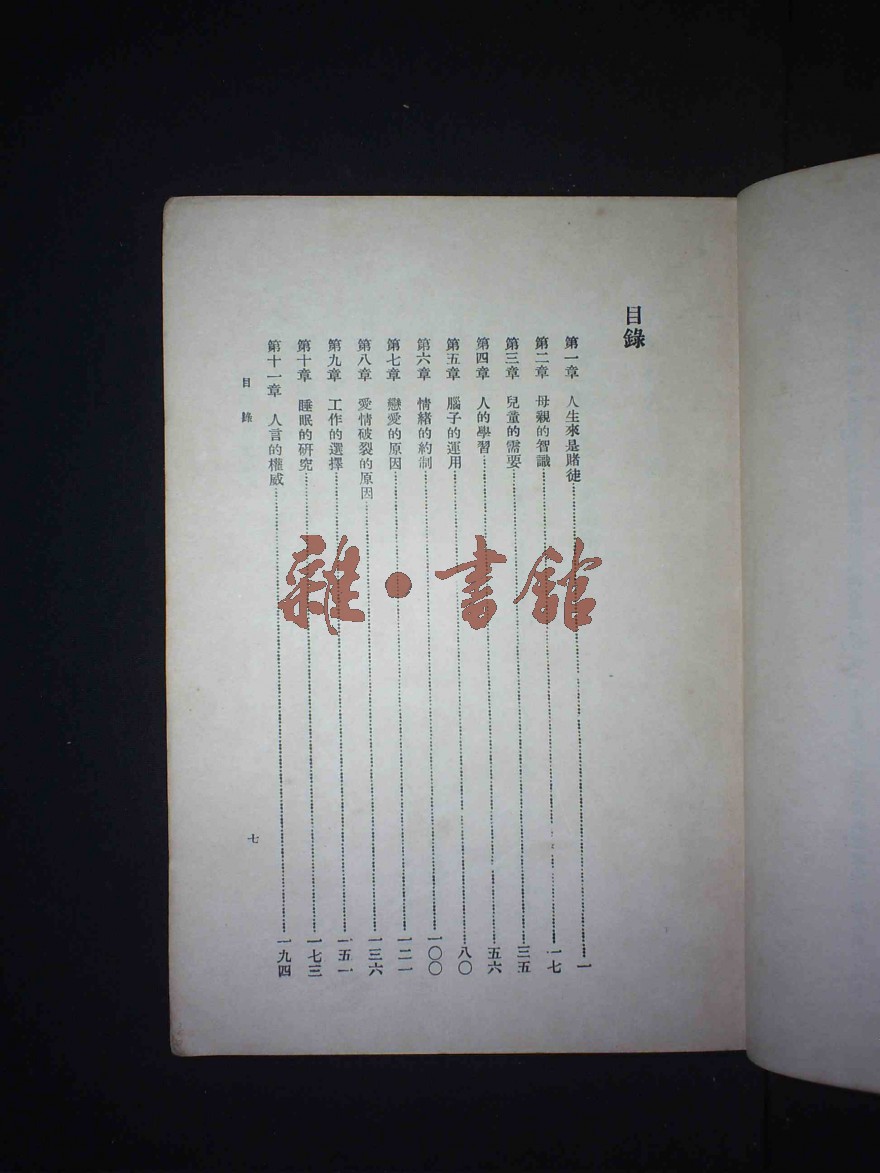 目錄
第一章　人生來是賭徒……一
第二章　母親的智識……一七
第三章　兒童的需要……三五
第四章　人的學習……五六
第五章　腦子的運用……八〇
第六章　情緒的約制……一〇〇
第七章　戀愛的原因……一二一
第八章　愛情破裂的原因……一三六
第九章　工作的選擇……一五一
第十章　睡眠的研究……一七三
第十一章　人言的權威……一九四
目錄
七
雜·書館